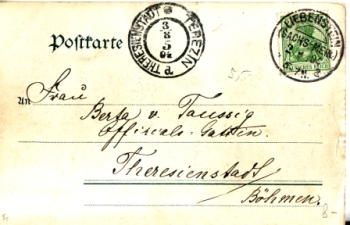 Postkarte
THERESIENSTADT TEREZIN
3
8
5
04
LIEBENSTEIN
(SACHS.-MEIN.)
An Frau
Berta v. Taussig
Officials-Gattin.
Theresienstadt
Böhmen.